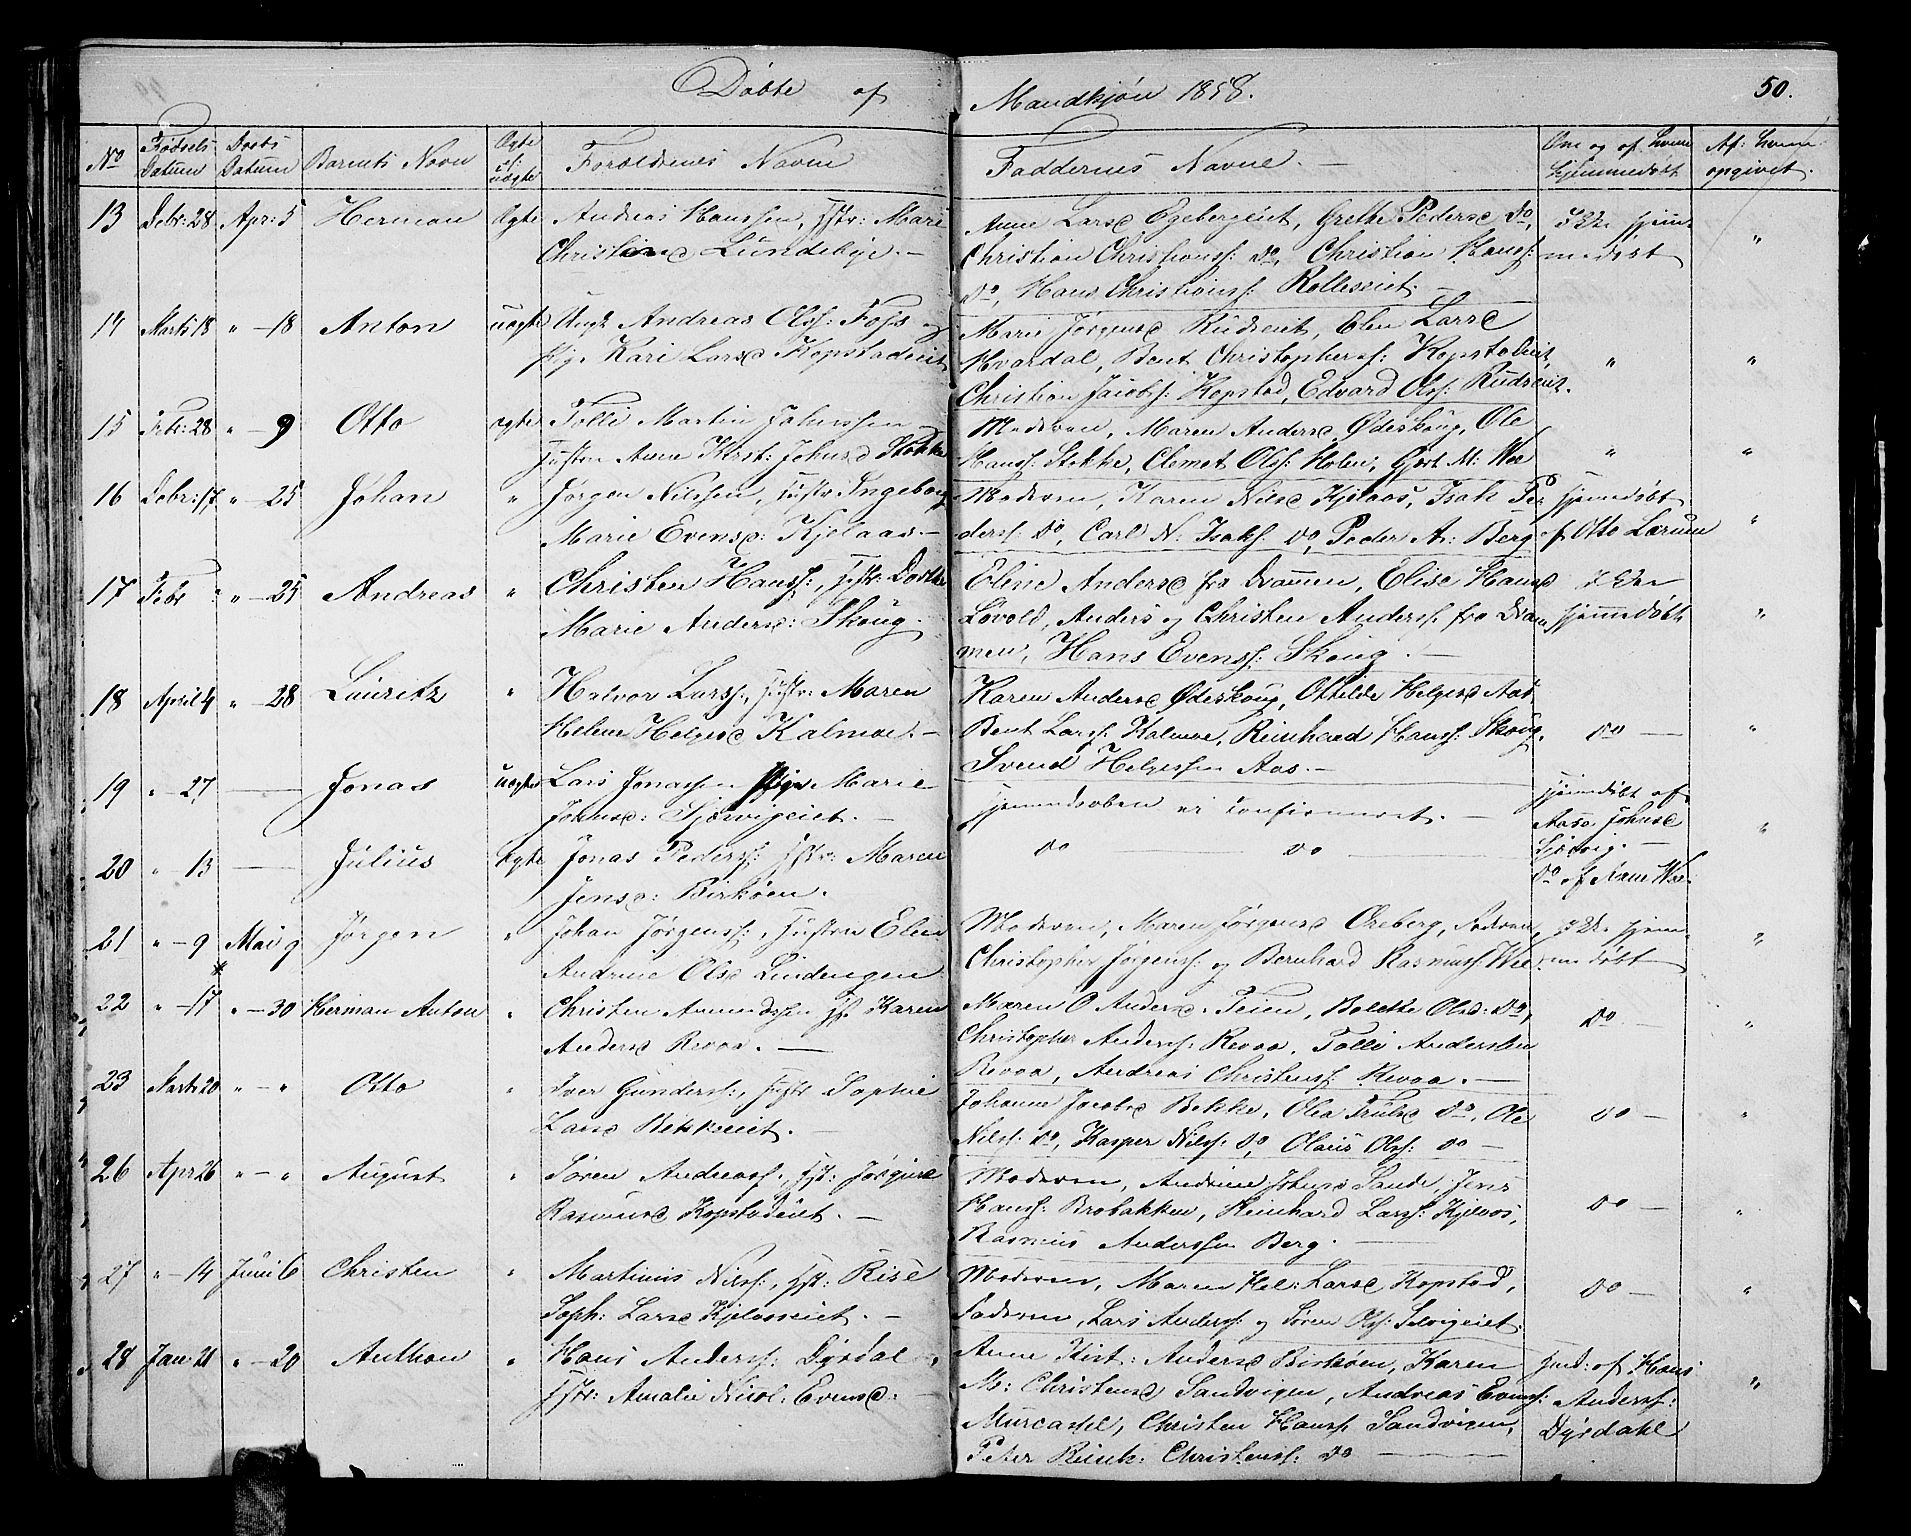 Døbte af Mandkjøn 1858. 50.
No Fødsels Datum Daabs Datum Barnets Navn Ægte el: uægte Forældrenes Navne Faddernes Navne. — Om og af hvem hjemmedøbt Af: hvem opgivet.
13 Debr: 28 Apr: 5 Herman Ægte Andreas Hanssen, Hstr: Marie
Christine Lundebye. —
Anne Larsd Egebergeiet, Grethe Pedersd Do, Ikke hjem- "
Christian Christianss: Do, Christian Hanss: medøbt
Do, Hans Christianss: Rolleseiet. —
14 Marts 18 " — 18 Anton uægte Ungk Andreas Olss: Foss og
Pg. Kari Larsd Kopstadeiet
Maren Jørgensd Rudseiet, Elen Larsd
Hvardal, Bent Christopherss: Kopstadeiet " "
Christian Jacobs: Kopstad, Edvard Olss: Rudseiet.
15 Febr: 28 " — 9 Otto ægte Tolli Martin Johnssen
Hustru Anne Kirst: Johnsd Stokke
Moderen, Maren Andersd Ødeskoug, Ole
Hanss: Stokke, Clemet Olss: Holen, Gjort M: Wee " "
16 Debr: 17 " — 25 Johan " Jørgen Nilssen, Hustr: Ingeborg
Marie Evensd: Kjelaas —
Moderen, Karen Nilsd Kjelaas, Isak Pe- hjemmedøbt
derss: Do, Carl N: Isaks: Do, Peder A: Berg af Otto Lærum "
17 Febr " — 25 Andreas " Christen Hanss:, Hstr: Dorthe
Marie Andersd: Skoug.
Eline Andersd fra Drammen, Elise Hansd Ikke
Løvold, Anders og Christen Anderss: fra Dram- hjemmedøbt "
men, Hans Evenss: Skoug. —
18 April 4 " — 28 Lauritz " Halvor Larss:, Hustr: Maren
Helene Helgesd Kalmoe. —
Karen Andersd Ødeskoug, Ottilde Helgesd Aas,
Bent Larss: Kalmoe, Reinhard Hanss: Skoug, Do — "
Svend Helgessen Aas. —
19 " — 27 — Jonas uægte Lars Jonassen Pige Marie
Johnsd: Sjørvigeiet. —
Hjemmedaaben er Confirmeret. — hjemdøbt af
Aase Johnsd "
20 " — 13 — Julius Ægte Jonas Pederss: Hstr: Maren
Jensd: Birkøen.
Do — Do Do af Anne Wee
21 " — 9 Mai 9 Jørgen " Johan Jørgenss:, Hustru Elen
Andrine Olsd Lindengen
Moderen, Maren Jørgensd Oreberg, Faderen, Ikke hjem-
Christopher Jørgenss: og Bernhard Rasmuss: Wee. medøbt "
22 " — 17 " — 30 Herman Anton " Christen Amundssen Hst Karen
Andersd Revaa. —
Maren O Andersd: Teien, Bolette Olsd: Do, Do "
Christopher Anderss: Revaa, Tolli Anderssen
Revaa, Andreas Christenss: Revaa. —
23 Marts 20 " — " Otto " Iver Gunderss:, Hustr Sophie
Larsd Bekkeeiet. —
Johanne Jacobsd Bekke, Olea Trulsd Do, Ole Do — "
Nilss: Do, Kasper Nilss: Do, Olaus Olss: Do —
26 Apr 26 " — " August " Søren Andreass:, Hst: Jørgine
Rasmusd Kopstadeiet. —
Moderen, Andrine Johnsd Sande, Jens
Hanss: Brobakken, Reinhard Larss: Kjelaas, Do — "
Rasmus Anderssen Berg. —
27 " — 14 Juni 6 Christen " Martinus Nilss:, Hst: Rise
Soph: Larsd Kjelaaseiet. —
Moderen, Maren Hel: Larsd Kopstad, Do — "
Faderen, Lars Anderss: og Søren Olss: Selvigeiet.
28 Jan 21 " — 20 Anthon " Hans Anderss: Dyrdal,
Hstr: Amalie Nicol: Evensd:
Anne Kirst: Andersd Birkøen, Karen hjmd: af Hans
M: Christensd Sandvigen, Andreas Evenss: Anderss: "
Murcastel, Christen Hanss: Sandvigen, Dyrdahl
Peter Rinik: Christenss: Do —